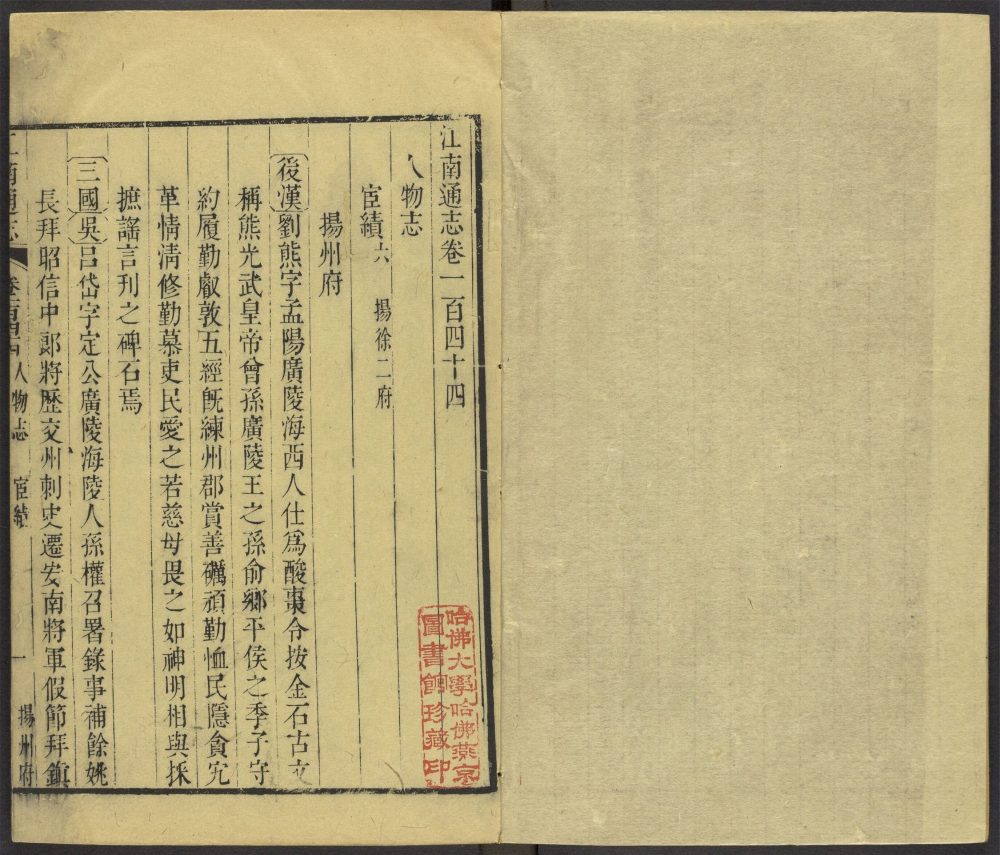 江南通志卷一百四十四
人物志
宦績六 揚徐二府
揚州府
後漢劉熊字孟陽廣陵海西人仕爲酸棗令按金石古文
稱熊光武皇帝曾孫廣陵王之孫俞鄉平侯之季子守
約履勤叡敦五經旣練州郡賞善礪頑勤恤民隱貪宄
革情清修勤慕吏民愛之若慈母畏之如神明相與採
摭謠言刊之碑石焉
三國吳呂岱字定公廣陵海陵人孫權召署錄事補餘姚
長拜昭信中郎將歷交州刺史遷安南將軍假節拜鎮
江南通志 卷一百四十四 人物志 宦績 一 揚州府
哈佛大學哈佛燕京
圖書館珍藏印